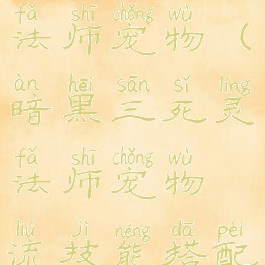 fǎ shī chǒng wù
法师宠物（
àn hēi sān sǐ líng
暗黑三死灵
fǎ shī chǒng wù
法师宠物
liú jì néng dā pèi
流技能搭配